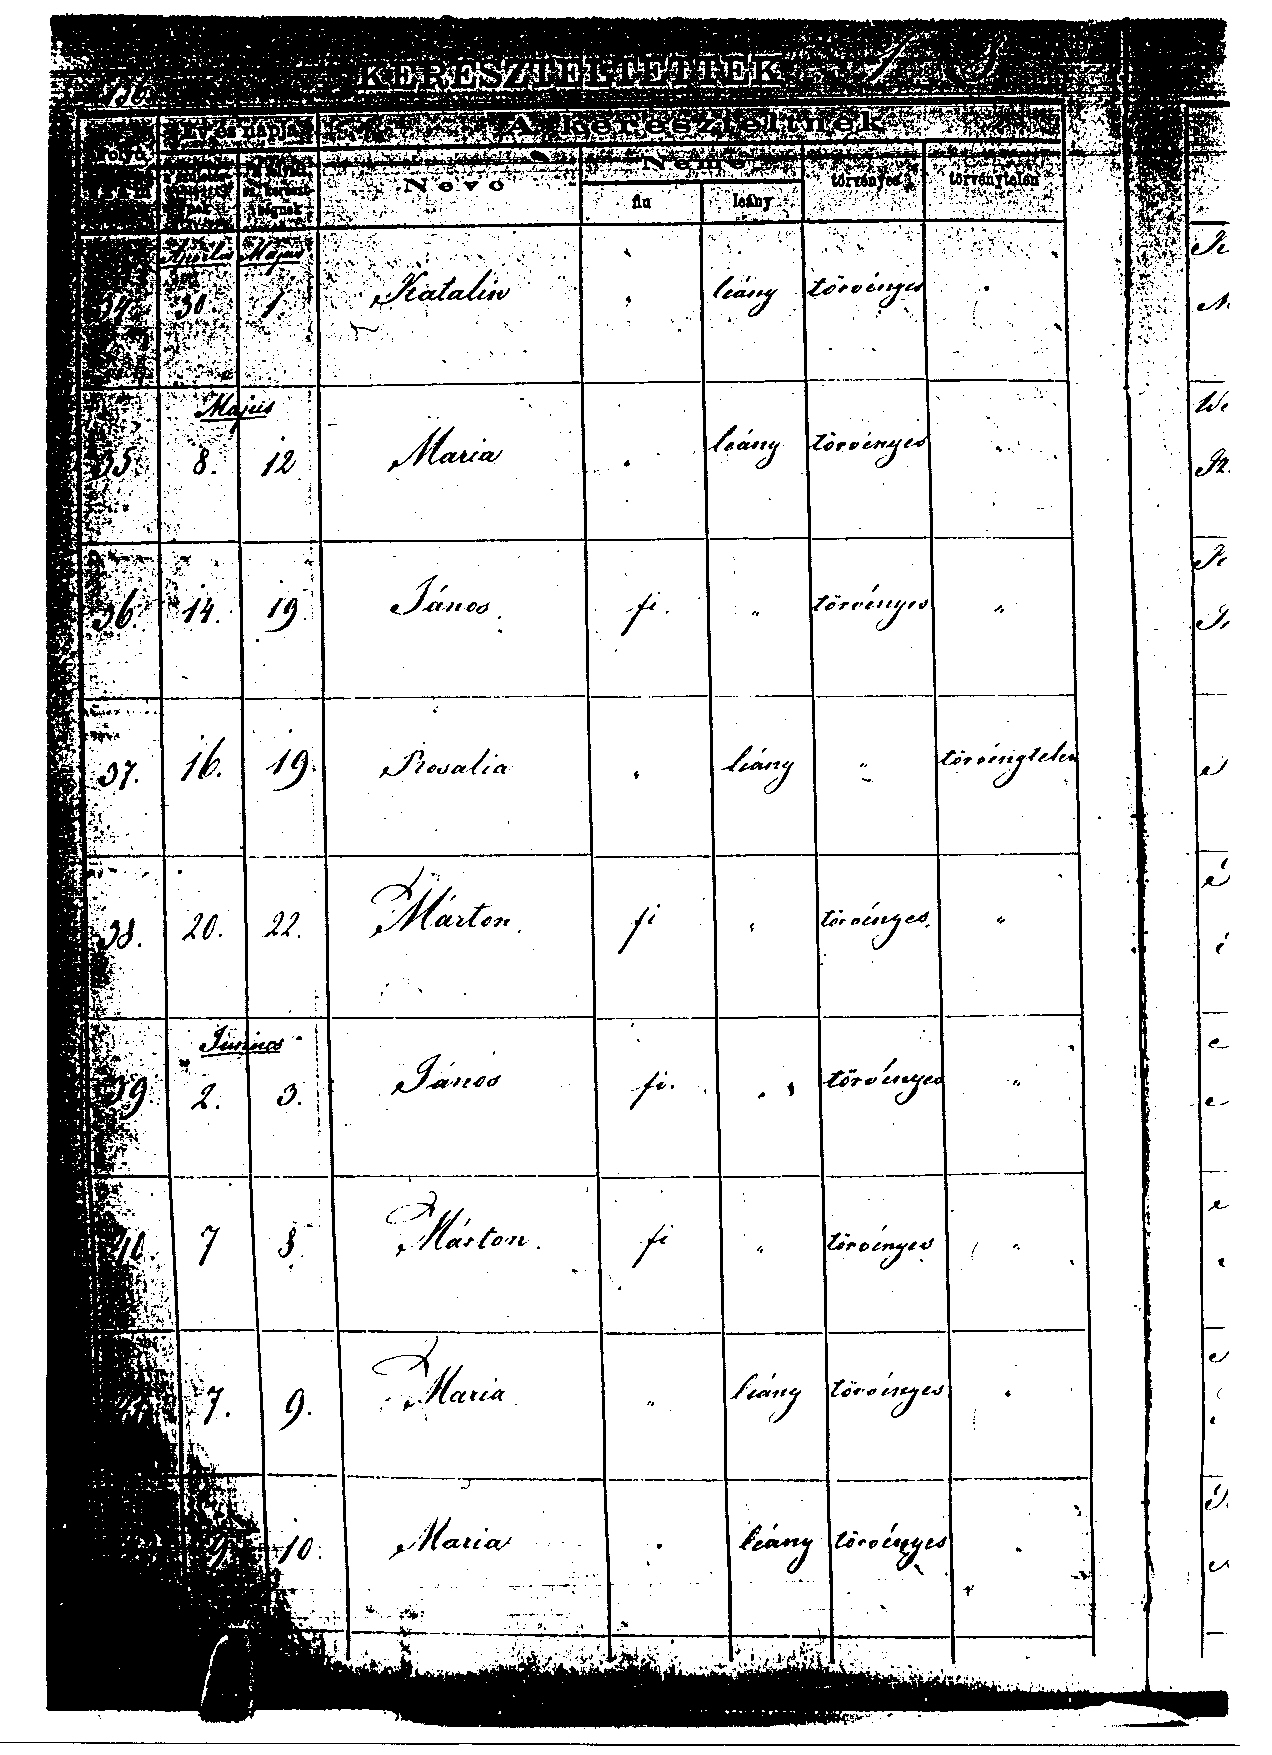 KERESZTELTETTEK
A kereszteltnek
Év és napja
Neve
Neme
fiu
leány
törvényes
törvénytelen
Aprilis Május
34. 30 1. Katalin " leány törvényes "
Május
35. 8. 12 Maria " leány törvényes "
36. 14. 19 János fi. " törvényes "
37. 16. 19. Rosalia " leány " törvénytelen
38. 20. 22. Márton fi " törvényes. "
Június
39 2. 3. János fi. " törvényes "
40. 7 8. Márton. fi " törvényes "
7. 9. Maria " leány törvényes "
9. 10. Maria " leány törvényes "